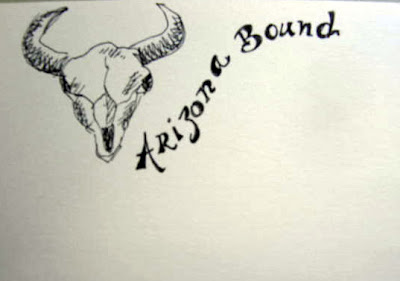 Arizona Bound